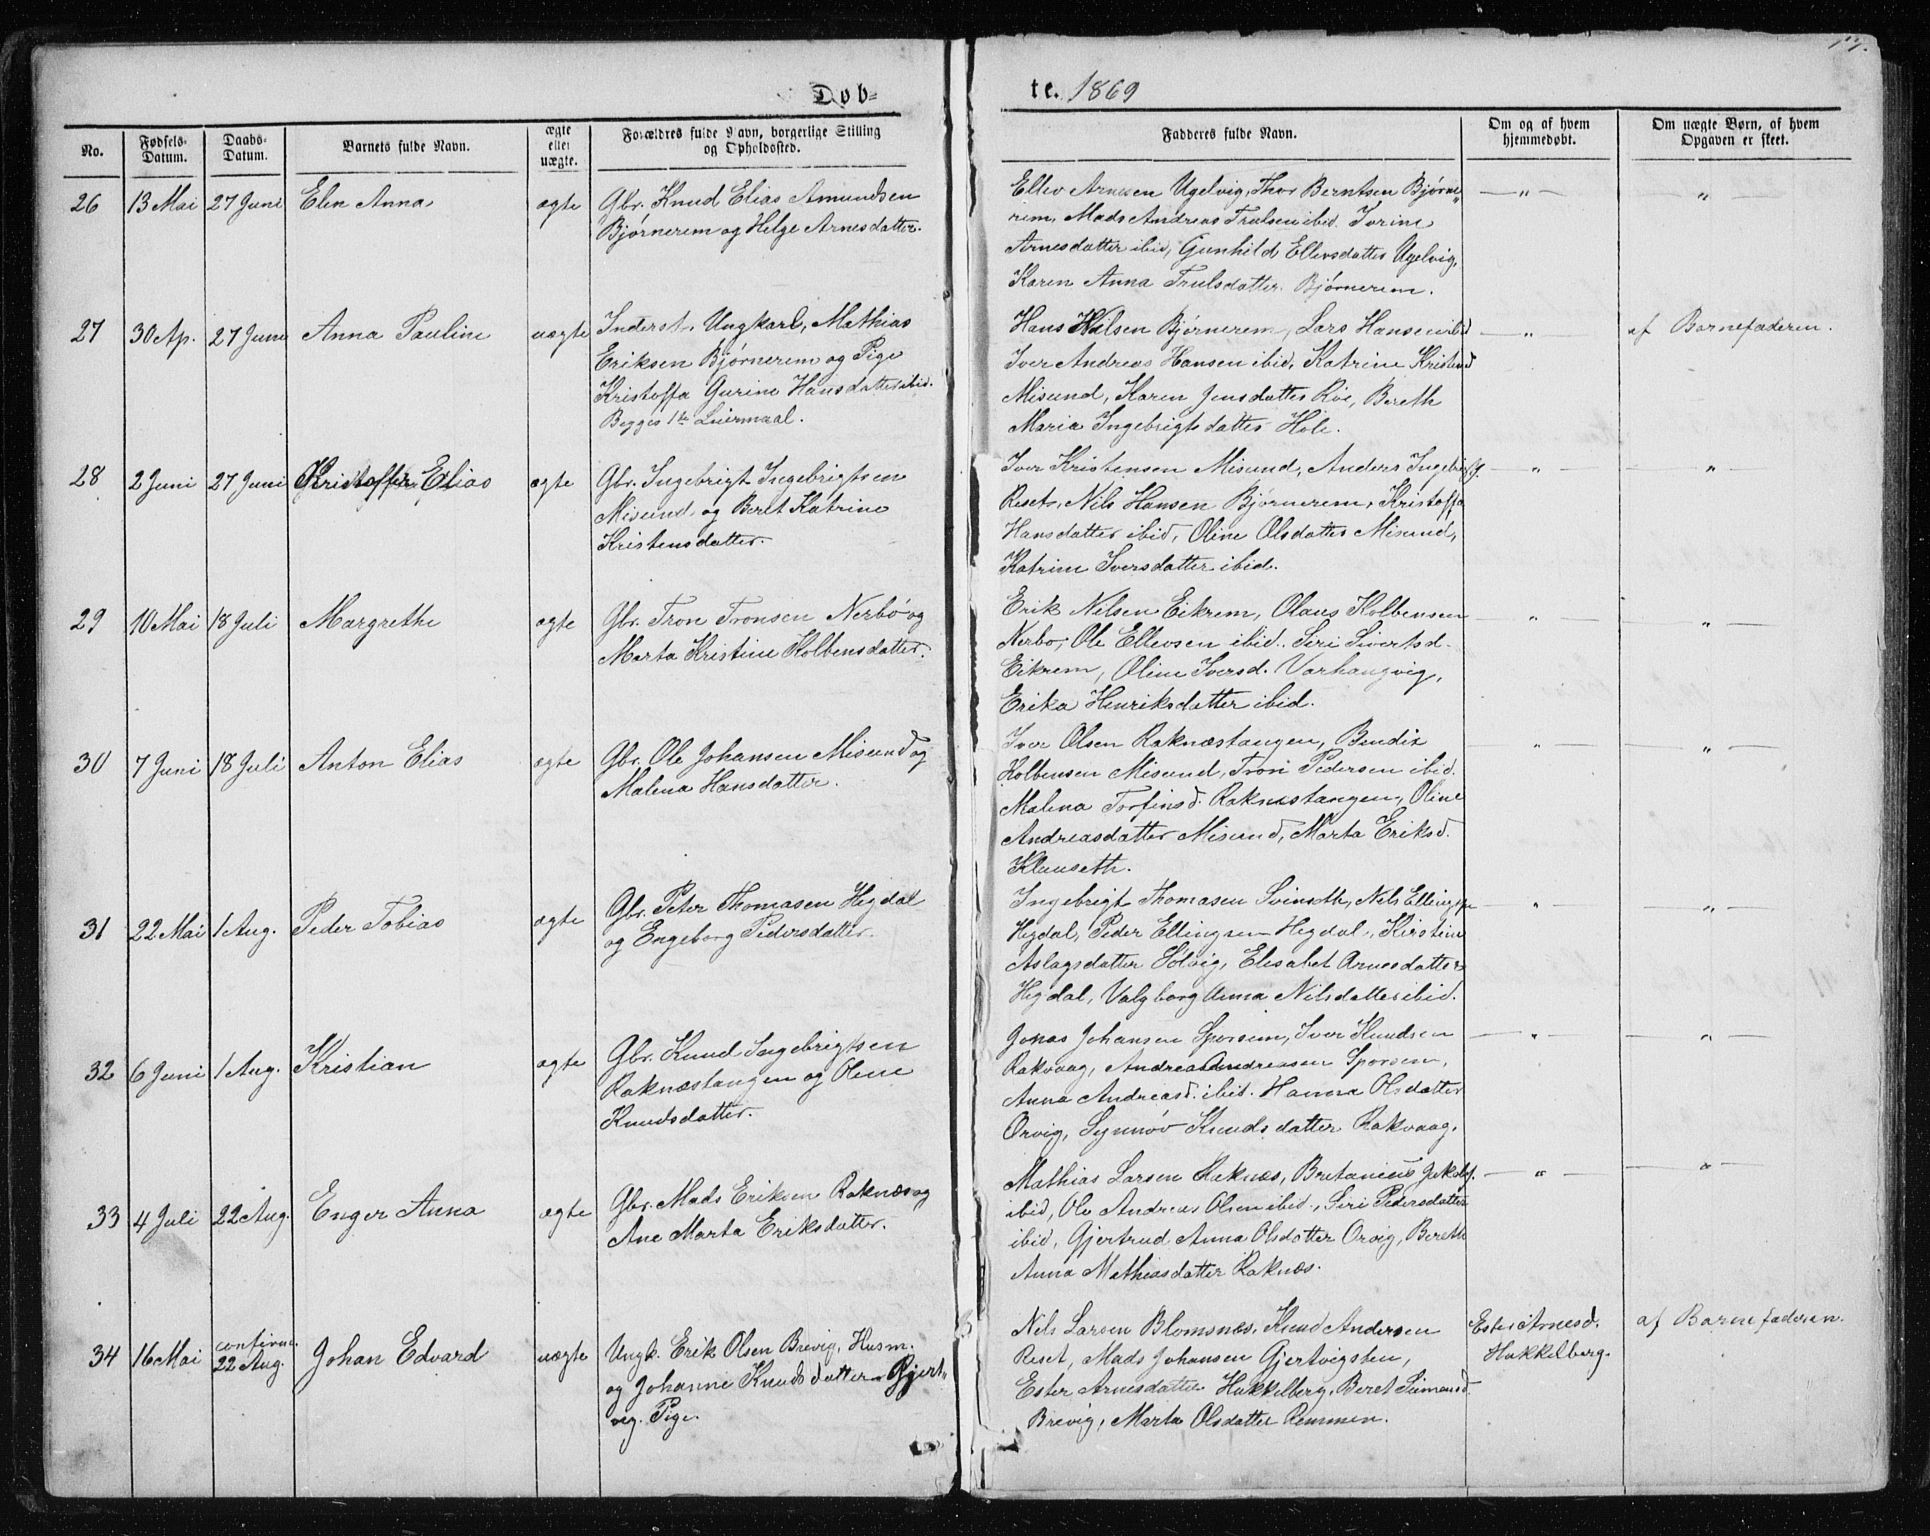 Døb-
te. 1869
No.
Fødsels-Datum.
Daabs-Datum.
Barnets fulde Navn.
ægte eller uægte.
Forældres fulde Navn, borgerlige Stilling og Opholdssted.
Fadderes fulde Navn.
Om og af hvem hjemmedøbt.
Om uægte Børn, af hvem Opgaven er skeet.
26 13 Mai 27 Juni Elen Anna ægte
Gbr. Knud Elias Amundsen
Bjørnerem og Helge Arnesdatter.
Ellev Arnesen Ugelvig, Thor Berntsen Bjørne-
rem, Mads Andreas Trulsen ibid. Iverine
Arnesdatter ibid, Gunhild Ellevsdatter Ugelvig,
Karen Anna Trulsdatter Bjørnerem.
— " —
"
27 30 Ap. 27 Juni Anna Pauline uægte
Inderst, Ungkarl, Mathias
Eriksen Bjørnerem og Pige
Kristoffa Gurine Hansdatter ibid.
Begges 1ste Leiermaal.
Hans Nilsen Bjørnerem, Lars Hansen ibid
Iver Andreas Hansen ibid, Katrine Kristensd
Misund, Karen Jensdatter Roe, Bereth
Maria Ingebrigtsdatter Hole.
— " —
af Barnefaderen.
28 2 Juni 27 Juni Kristoffer Elias ægte
Gbr. Ingebrigt Ingebrigtsen
Misund og Beret Katrine
Kristensdatter.
Iver Kristensen Misund, Anders Ingebrigtsg.
Reset, Nils Hansen Bjørnerem, Kristoffa
Hansdatter ibid, Oline Olsdatter Misund,
Katrine Iversdatter ibid.
— " —
"
29 10 Mai 18 Juli Margrethe ægte
Gbr. Tron Tronsen Nerbø og
Marta Kristine Kolbensdatter.
Erik Nilsen Eikrem, Olaus Kolbensen
Nerbø, Ole Ellevsen ibid. Siri Sivertsd.
Eikrem, Oline Iversd. Varhaugvig,
Erika Henriksdatter ibid.
— " —
— " —
30 7 Juni 18 Juli Anton Elias ægte
Gbr. Ole Johansen Misund og
Malena Hansdatter.
Iver Olsen Raknæstangen, Bendix
Kolbensen Misund, Tron Pedersen ibid.
Malena Torfinsd. Raknæstangen, Oline
Andreasdatter Misund, Marta Eriksd.
Klauseth.
— " —
— " —
31 22 Mai 1 Aug. Peder Tobias ægte
Gbr. Peter Thomasen Hegdal
og Engeborg Pedersdatter.
Ingebrigt Thomasen Svinøth, Nels Ellingsen
Hegdal, Peder Ellingsen Hegdal, Kirstine
Aslagsdatter Sølvig, Elisabet Arnesdatter
Hegdal, Valgborg Anna Nilsdatter ibid.
— " —
— " —
32 6 Juni 1 Aug. Kristian ægte
Gbr. Knud Ingebrigtsen
Raknæstangen og Olene
Knudsdatter.
Jonas Johansen Sporsem, Iver Knudsen
Rakvaag, Andreas Andreasen Sporsem,
Anna Andreasd. ibid. Hanna Olsdatter
Orvig, Synnøv Knudsdatter Rakvaag.
— " —
— " —
33 4 Juli 22 Aug. Enger Anna ægte
Gbr. Mads Eriksen Raknæs og
Ane Marta Eriksdatter.
Mathias Larsen Raknæs, Bretanius Jakobs.
ibid, Ole Andreas Olsen ibid, Siri Pedersdatter
ibid, Gjertrud Anna Olsdatter Orvig, Bereth
Anna Mathiasdatter Raknæs.
— " —
— " —
34 16 Mai confirm. 22 Aug. Johan Edvard uægte
Ungk. Erik Olsen Brevig, Husm.
og Johanne Knudsdatter Gjert-
vig. Pige.
Nils Larsen Blomsnæs, Knud Andersen
Reset, Mads Johansen Gjertvigsten,
Ester Arnesdatter Hukkelberg, Beret Simensd
Brevig, Marta Olsdatter Remmen.
Ester Arnesd.
Hukkelberg.
af Barnefaderen.